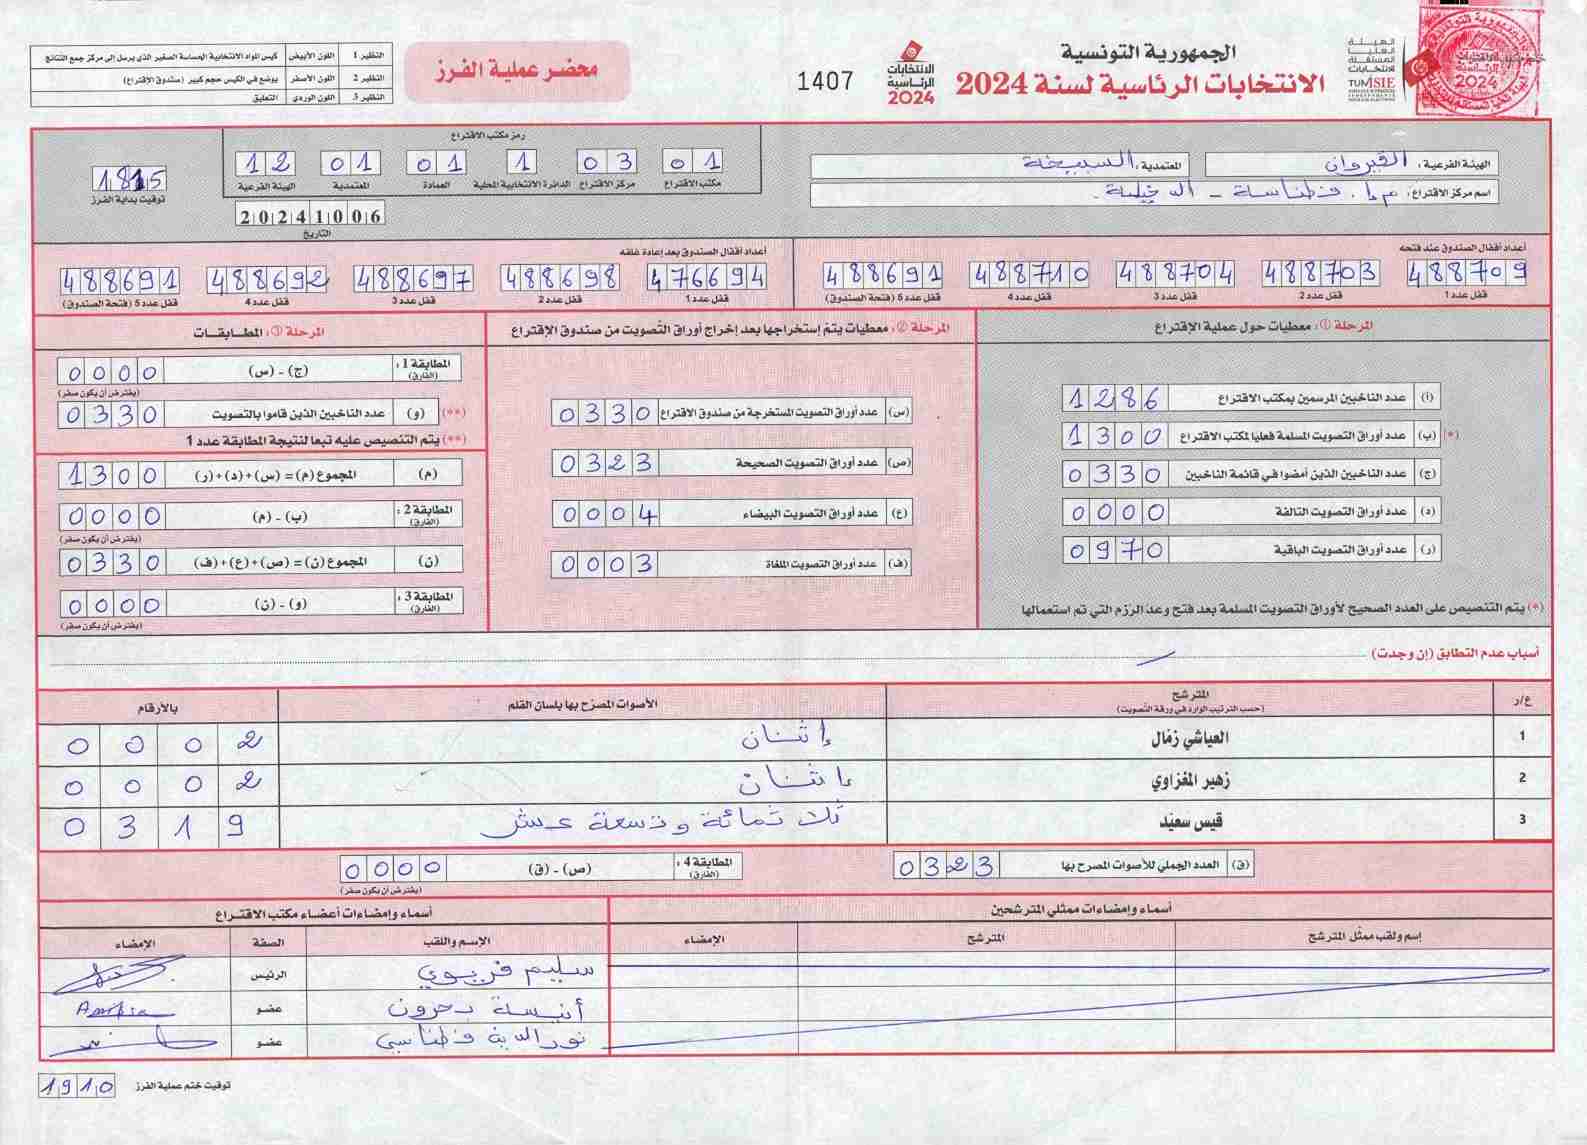 الجمهورية التونسية
الانتخابات الرئاسية لسنة 2024
الهيئة العليا المستقلة للانتخابات
TUNISIE
الانتخابات الرئاسية 2024
1407
محضر عملية الفرز
النظير 1 اللون الأبيض كيس المواد الانتخابية الحساسة الصغير الذي يرسل إلى مركز جمع النتائج
النظير 2 اللون الأصفر يوضع في الكيس حجم كبير (صندوق الاقتراع)
النظير 3 اللون الوردي التعليق
الهيئة الفرعية: القيروان
المعتمدية: السبيخة
اسم مركز الاقتراع: م.إ. فطناسة - الدخيلة
رمز مكتب الاقتراع
01 03 1 01 01 12
مكتب الاقتراع مركز الاقتراع الدائرة الانتخابية المحلية العمادة المعتمدية الهيئة الفرعية
20241006
التاريخ
1815
توقيت بداية الفرز
أعداد أقفال الصندوق عند فتحه
488709 488703 488704 488710 488691
قفل عدد 1 قفل عدد 2 قفل عدد 3 قفل عدد 4 قفل عدد 5 (فتحة الصندوق)
أعداد أقفال الصندوق بعد إعادة غلقه
476694 488698 488697 488692 488691
قفل عدد 1 قفل عدد 2 قفل عدد 3 قفل عدد 4 قفل عدد 5 (فتحة الصندوق)
المرحلة ①: معطيات حول عملية الاقتراع
(أ) عدد الناخبين المرسمين بمكتب الاقتراع 1286
(*) (ب) عدد أوراق التصويت المسلمة فعليا لمكتب الاقتراع 1300
(ج) عدد الناخبين الذين أمضوا في قائمة الناخبين 0330
(د) عدد أوراق التصويت التالفة 0000
(ر) عدد أوراق التصويت الباقية 0970
(*) يتم التنصيص على العدد الصحيح لأوراق التصويت المسلمة بعد فتح وعد الرزم التي تم استعمالها
المرحلة ②: معطيات يتم إستخراجها بعد إخراج أوراق التصويت من صندوق الإقتراع
(س) عدد أوراق التصويت المستخرجة من صندوق الاقتراع 0330
(ص) عدد أوراق التصويت الصحيحة 0323
(ع) عدد أوراق التصويت البيضاء 0004
(ف) عدد أوراق التصويت الملغاة 0003
المرحلة ③: المطابقات
المطابقة 1: (الفارق) (ج) - (س) 0000
(يفترض أن يكون صفر)
(**) (و) عدد الناخبين الذين قاموا بالتصويت 0330
(**) يتم التنصيص عليه تبعا لنتيجة المطابقة عدد 1
(م) المجموع (م) = (س) + (د) + (ر) 1300
المطابقة 2: (الفارق) (ب) - (م) 0000
(يفترض أن يكون صفر)
(ن) المجموع (ن) = (ص) + (ع) + (ف) 0330
المطابقة 3: (الفارق) (و) - (ن) 0000
(يفترض أن يكون صفر)
أسباب عدم التطابق (إن وجدت)
ع/ر المترشح (حسب الترتيب الوارد في ورقة التصويت) الأصوات المصرح بها بلسان القلم بالأرقام
1 العياشي زمّال إثنان 0002
2 زهير المغزاوي إثنان 0002
3 قيس سعيّد ثلاثمائة وتسعة عشر 0319
(ق) العدد الجملي للأصوات المصرح بها 0323
المطابقة 4: (الفارق) (ص) - (ق) 0000
(يفترض أن يكون صفر)
أسماء وإمضاءات ممثلي المترشحين
إسم ولقب ممثل المترشح المترشح الإمضاء
أسماء وإمضاءات أعضاء مكتب الاقتراع
الإسم واللقب الصفة الإمضاء
سليم قريوي الرئيس
أنيسة بحرون عضو
نور الدين فطناسي عضو
توقيت ختم عملية الفرز 1910